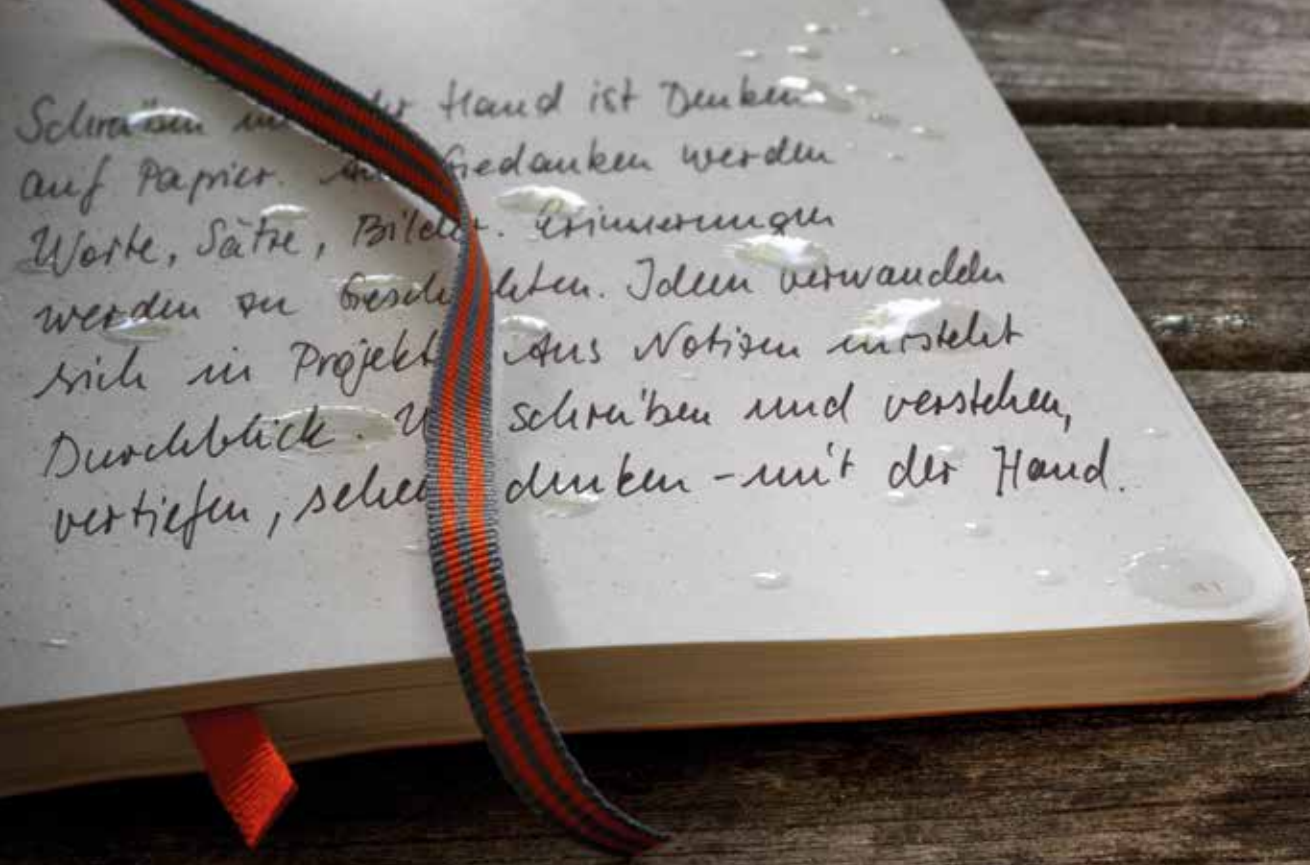 Schreiben der Hand ist Denken
auf Papier. Gedanken werden
Worte, Sätze, Bilder. Erinnerungen
werden zu Geschichten. Ideen verwandeln
sich in Projekt Aus Notizen entsteht
Durchblick. schreiben und verstehen,
vertiefen, sehen denken – mit der Hand.